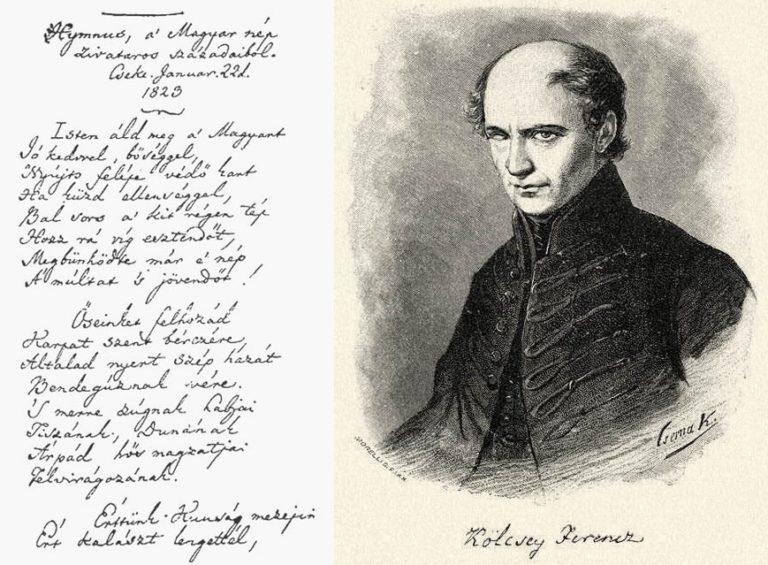 Hymnus, a' Magyar nép
zivataros századaiból.
Cseke. Januar. 22d.
1823
Isten áld meg a' Magyart
Jó kedvvel, bőséggel,
Nyújts feléje védő kart
Ha küzd ellenséggel,
Bal sors a' kit régen tép
Hozz rá víg esztendőt,
Megbűnhödte már e' nép
A' múltat 's jövendőt!
Őseinket felhozád
Karpat szent bérczére,
Általad nyert szép hazát
Bendegúznak vére.
'S merre zúgnak habjai
Tiszának, Dunának
Árpád hős magzatjai
Felvirágozának.
Értünk Kunság mezejin
Ért kalászt lengettél,
Cserna K.
MORELLI G.
Kölcsey Ferencz